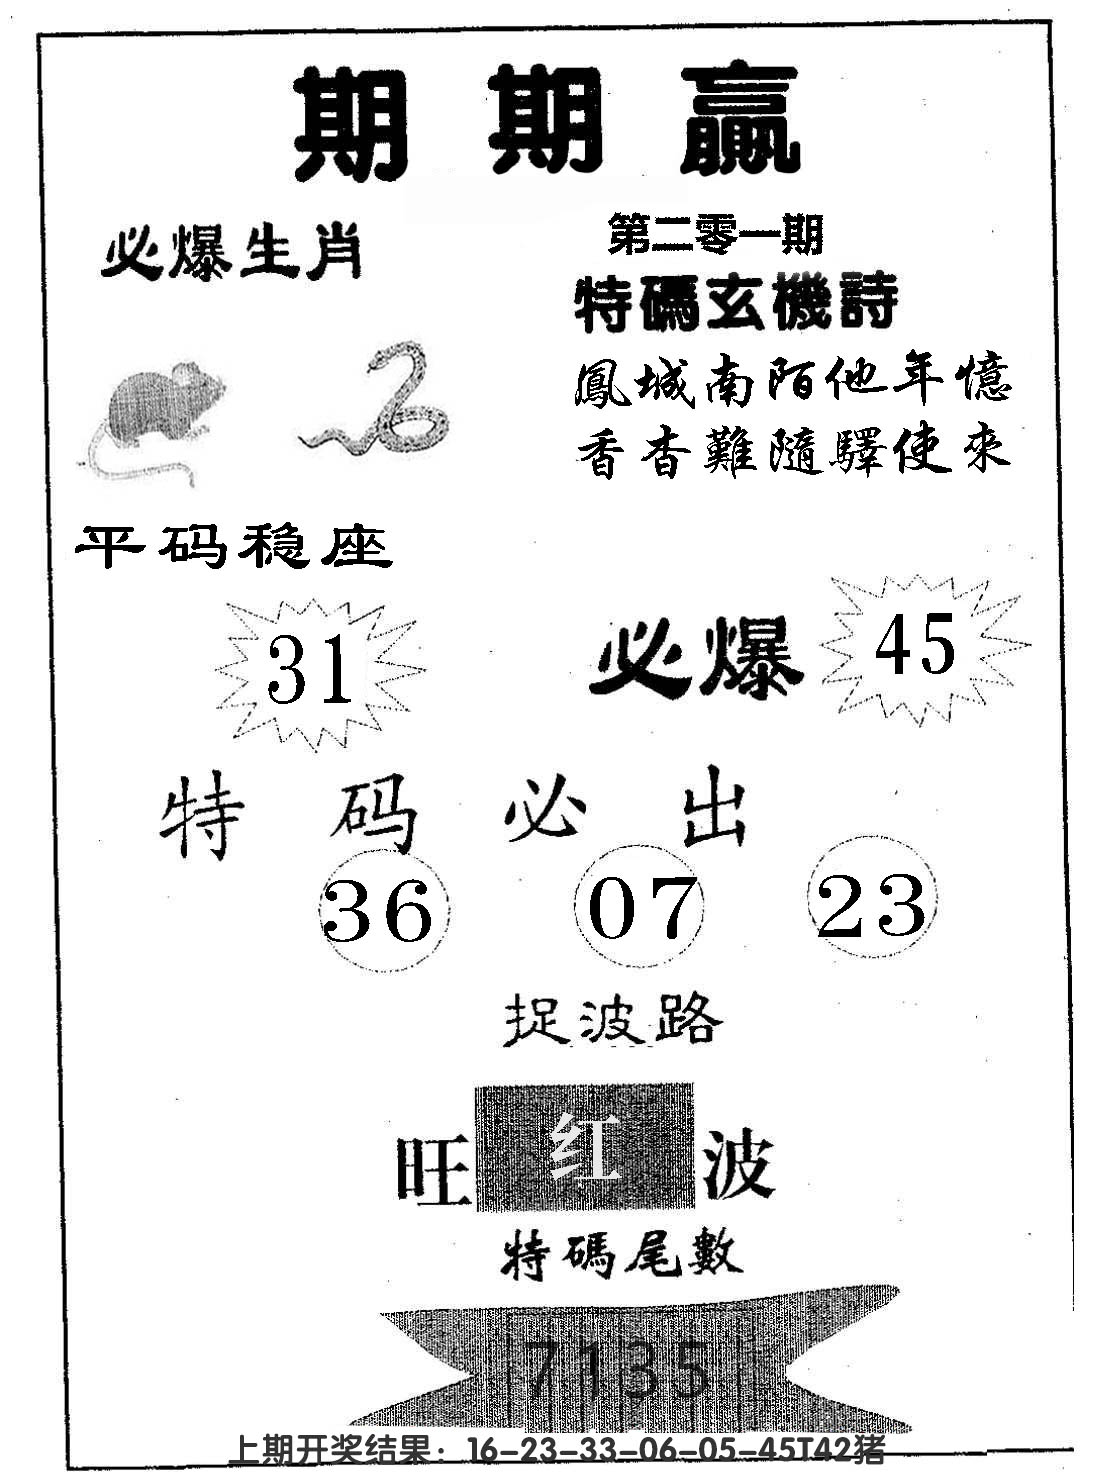 期期赢
必爆生肖
第二零一期
特碼玄機詩
鳳城南陌他年憶
香杳難隨驛使來
平码稳座
31
必爆 45
特码必出
36 07 23
捉波路
旺红波
特碼尾數
7135
上期开奖结果：16-23-33-06-05-45T42猪